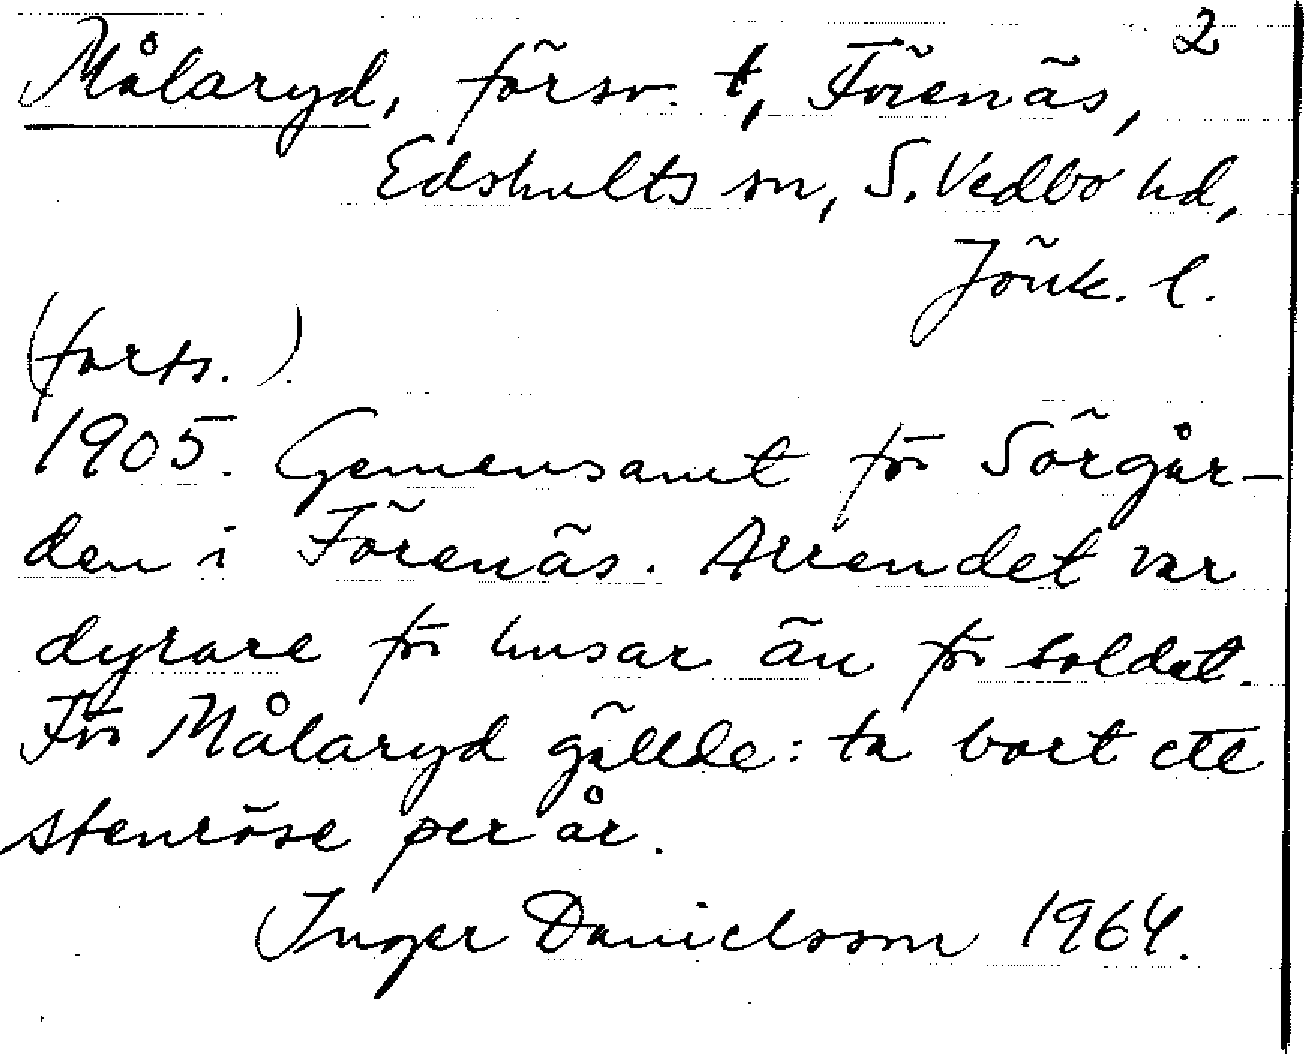 2
Målaryd, försv. t, Förenäs,
Edshults sn, S. Vedbo hd,
Jönk. l.
(forts.)
1905. Gemensamt för Sörgår-
den i Förenäs. Arrendet var
dyrare för husar än för soldat.
För Målaryd gällde: ta bort ett
stenröse per år.
Inger Danielsson 1964.